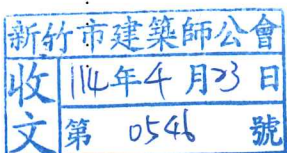 新竹市建築師公會
收文
114年4月23日
第 0546 號